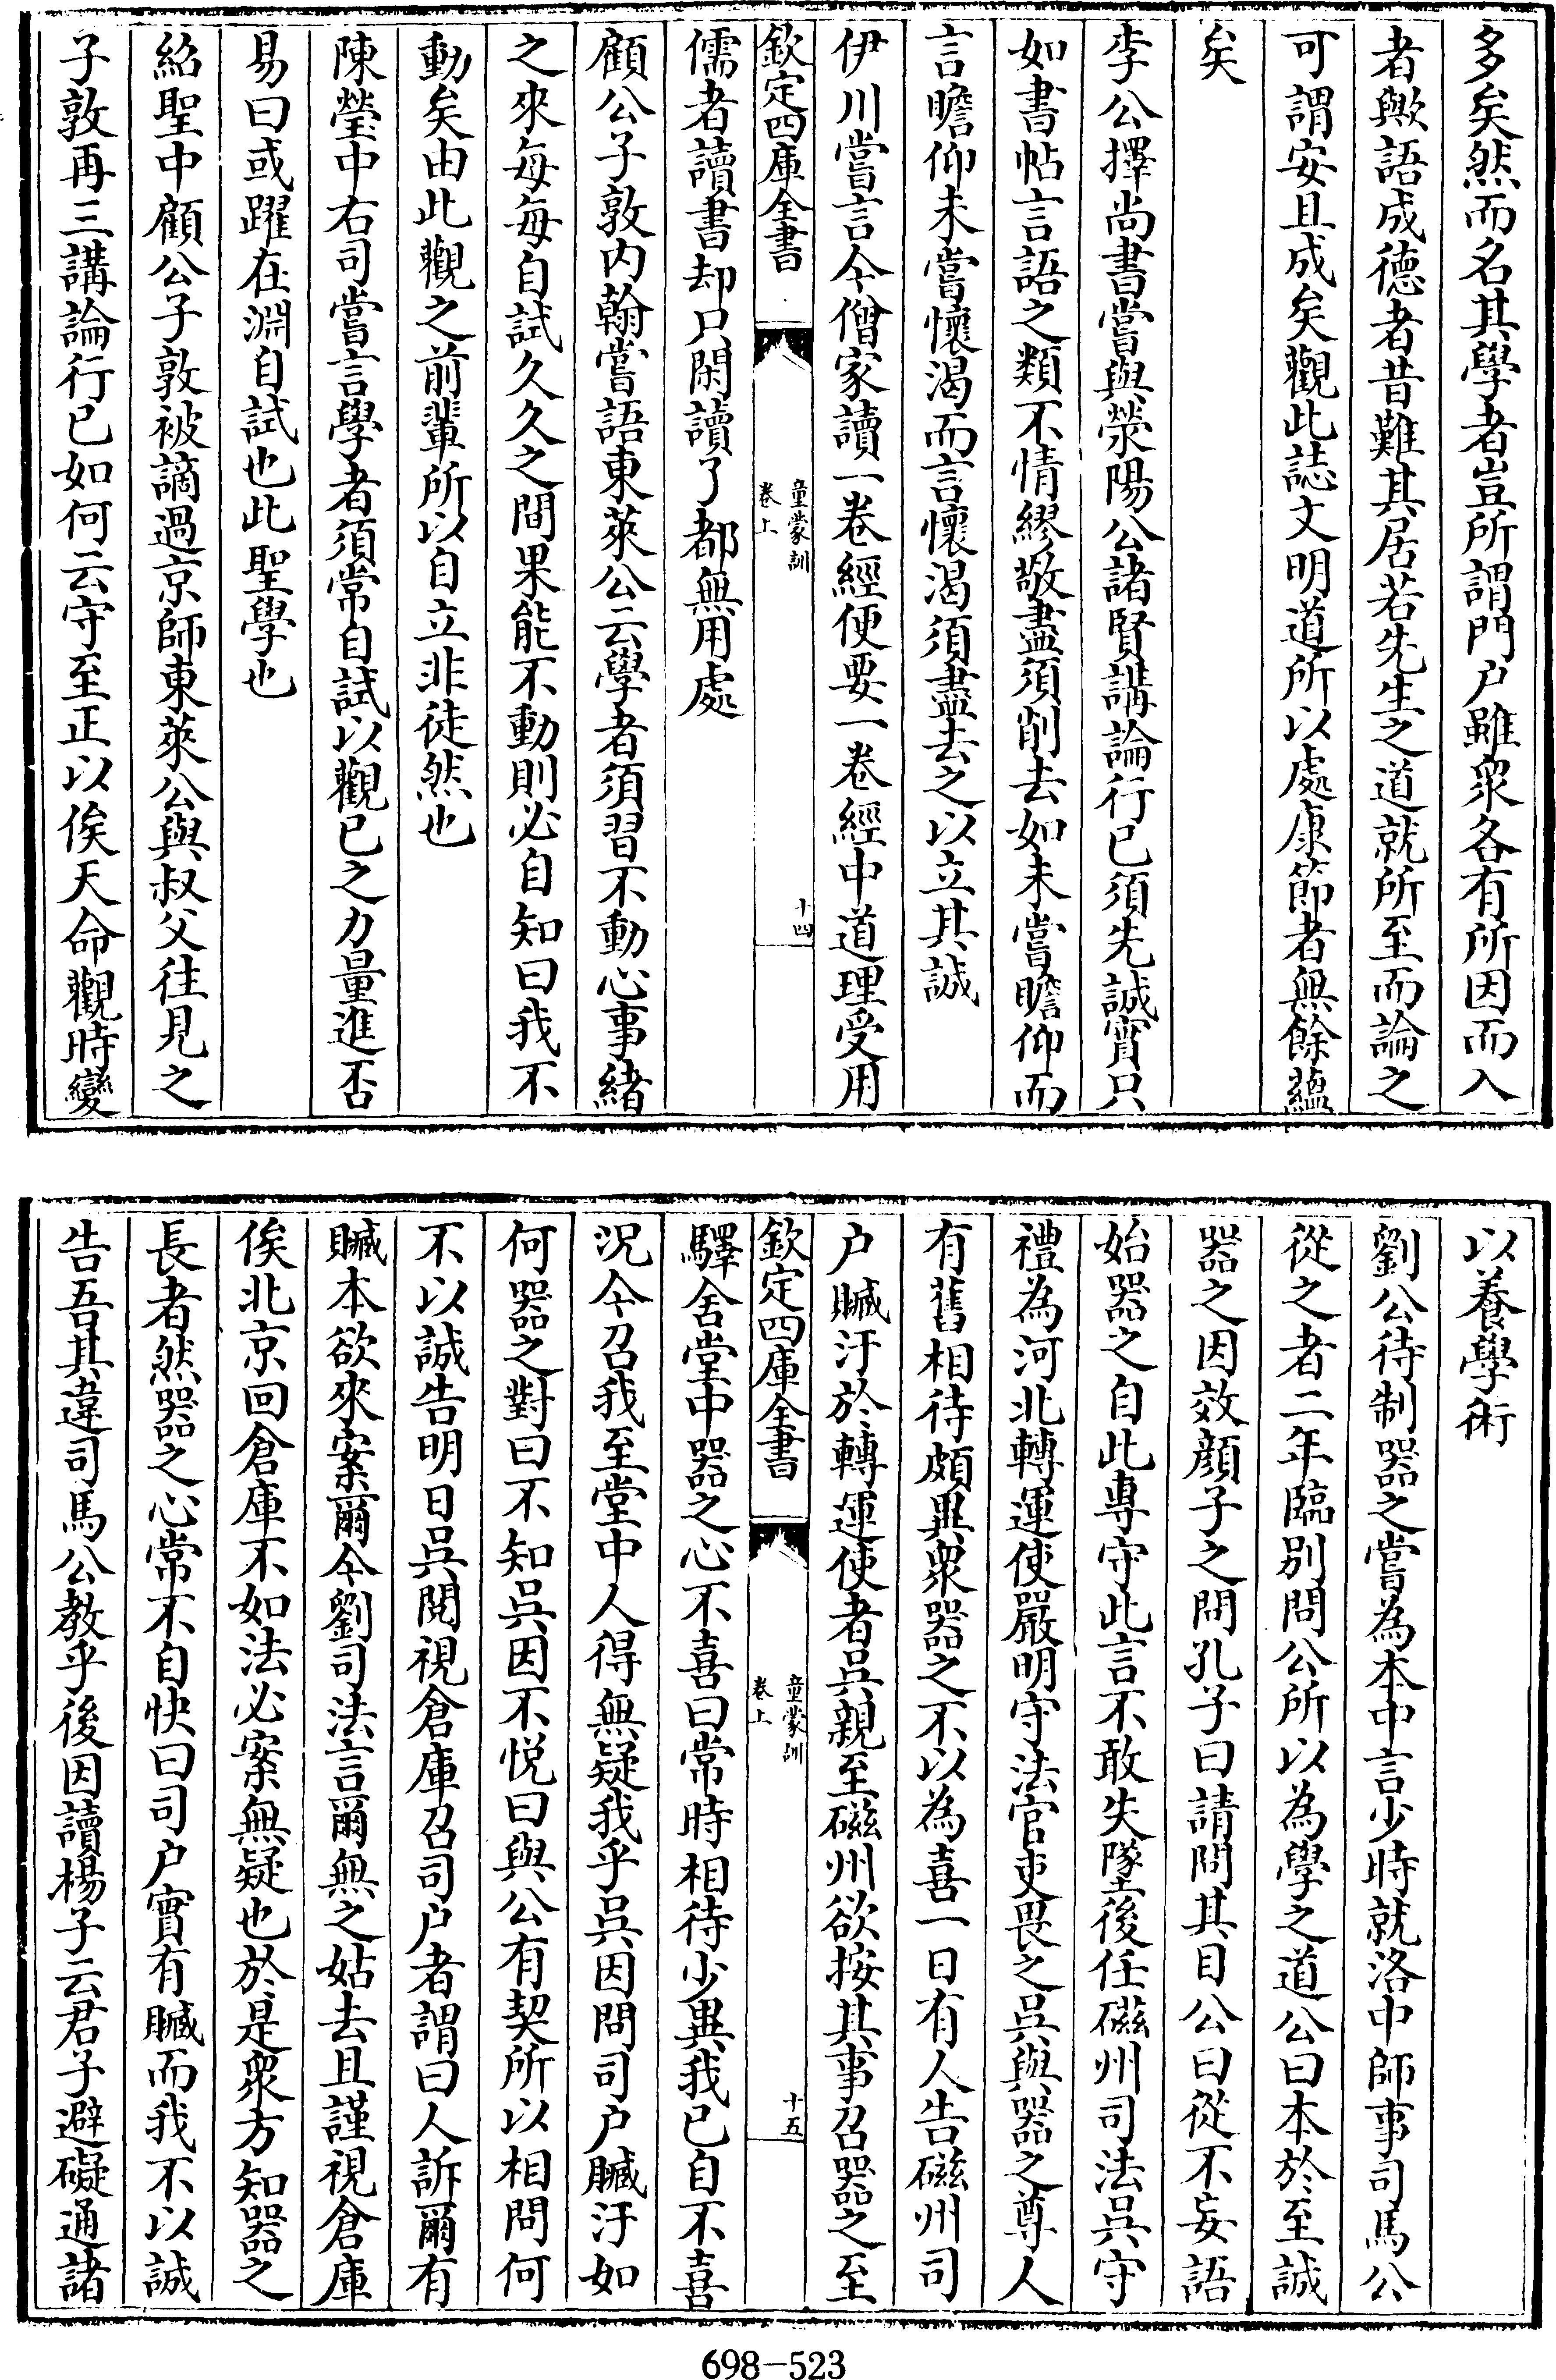 多矣然而名其學者豈所謂門户雖衆各有所因而入
者歟語成德者昔難其居若先生之道就所至而論之
可謂安且成矣觀此誌文明道所以處康節者無餘蘊
矣
李公擇尚書嘗與滎陽公諸賢講論行已須先誠實只
如書帖言語之類不情繆敬盡須削去如未嘗瞻仰而
言瞻仰未嘗懷渴而言懷渴須盡去之以立其誠
伊川嘗言今僧家讀一卷經便要一卷經中道理受用
欽定四庫全書
童蒙訓
卷上
十四
儒者讀書却只閑讀了都無用處
顧公子敦内翰嘗語東萊公云學者須習不動心事緒
之來每每自試久久之間果能不動則必自知曰我不
動矣由此觀之前輩所以自立非徒然也
陳瑩中右司嘗言學者須常自試以觀已之力量進否
易曰或躍在淵自試也此聖學也
紹聖中顧公子敦被謫過京師東萊公與叔父往見之
子敦再三講論行已如何云守至正以俟天命觀時變
以養學術
劉公待制器之嘗為本中言少時就洛中師事司馬公
從之者二年臨别問公所以為學之道公曰本於至誠
器之因效顔子之問孔子曰請問其目公曰從不妄語
始器之自此專守此言不敢失墜後任磁州司法吳守
禮為河北轉運使嚴明守法官吏畏之吳與器之尊人
有舊相待頗異衆器之不以為喜一日有人告磁州司
户贓汙於轉運使者吳親至磁州欲按其事召器之至
欽定四庫全書
童蒙訓
卷上
十五
驛舍堂中器之心不喜曰常時相待少異我已自不喜
况今召我至堂中人得無疑我乎吳因問司户贓汙如
何器之對曰不知吳因不悦曰與公有契所以相問何
不以誠告明日吳閲視倉庫召司户者謂曰人訴爾有
贓本欲來案爾今劉司法言爾無之姑去且謹視倉庫
俟北京回倉庫不如法必案無疑也於是衆方知器之
長者然器之心常不自快曰司户實有贓而我不以誠
告吾其違司馬公教乎後因讀楊子云君子避礙通諸
698-523